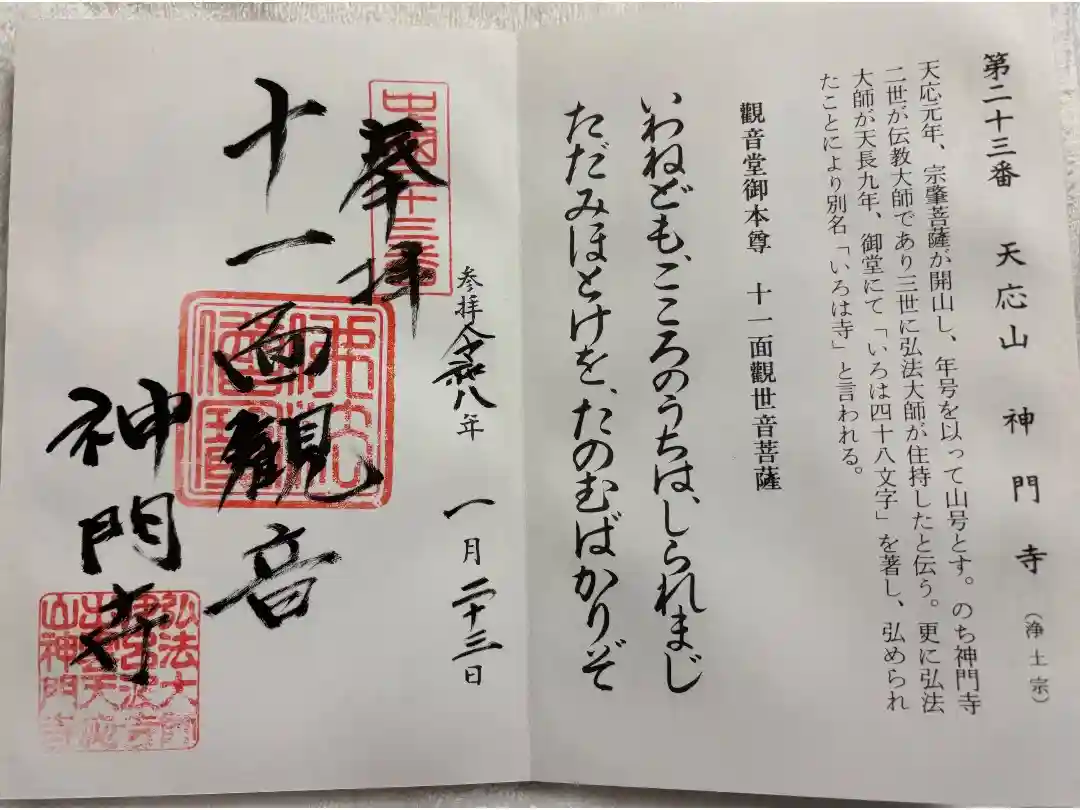 第二十三番 天応山 神門寺 (浄土宗)
天応元年、宗肇菩薩が開山し、年号を以って山号とす。のち神門寺
二世が伝教大師であり三世に弘法大師が住持したと伝う。更に弘法
大師が天長九年、御堂にて「いろは四十八文字」を著し、弘められ
たことにより別名「いろは寺」と言われる。
觀音堂御本尊 十一面觀世音菩薩
いわねども、こころのうちは、しられまじ
ただみほとけを、たのむばかりぞ
参拝令和八年 一月二十三日
中國二十三番
奉拝
十一面観音
佛法僧寳
神門寺
弘法大師